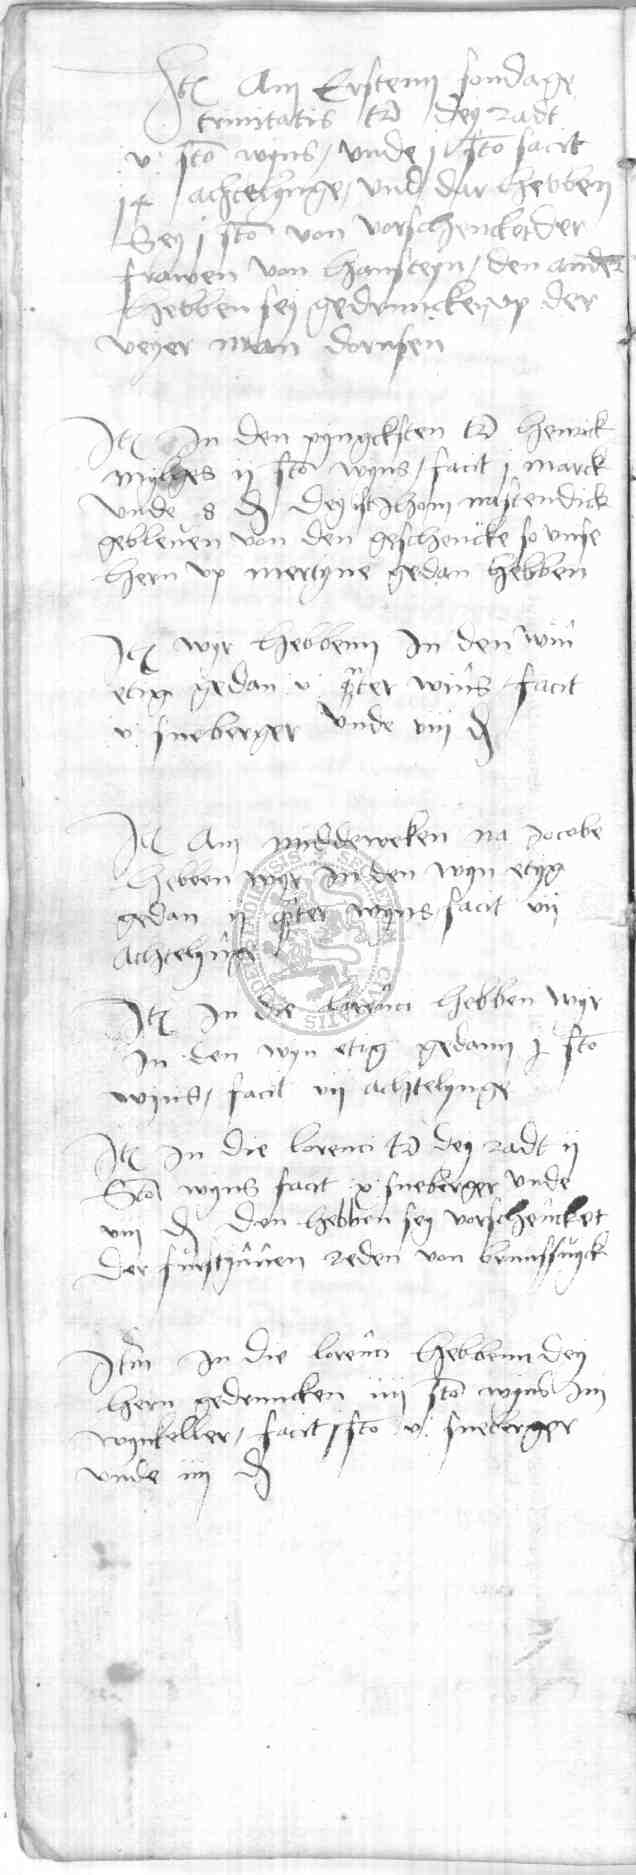 Itē Am Ersten sondage
trinitatis tꝛ dey radt
v sto wyns / unde j sto facit
achtelynge / und dar hebben
Sey j sto von vorschencket der
frawen von hansteyn / den ander
hebben sey gedrunicken up der
veyer man dornsen
Itē In den pyngcksten tꝛ henrick
mylges ij sto wyns / facit j marck
unde 8 ₰ dey ist Ichom nastendick
gebleven von den geschencke so unse
hern up mertyne gedan hebben
Itē wyr hebbenn In den win
etig gedan v qrter wins facit
v sneberger unde viij ₰
Itē Am middeweken na Jocobe
hebben wyr In den wyn etyg
gedan ij qrter wyns facit vij
achtelynge
Itē In die lorenci hebben wyr
In den wyn etig gedann j sto
wyns / facit vij achtelynge
Itē In die lorenci tꝛ dey radt ij
Sto wyns facit x sneberger unde
viij ₰ den hebben sey vorschencket
der furstynnen reden von brunsswyck
Itm In die lorenci hebbenn dey
hern gedruncken iiij sto wyns Im
wynkeller / facit j sto v sneberger
unde iiij ₰